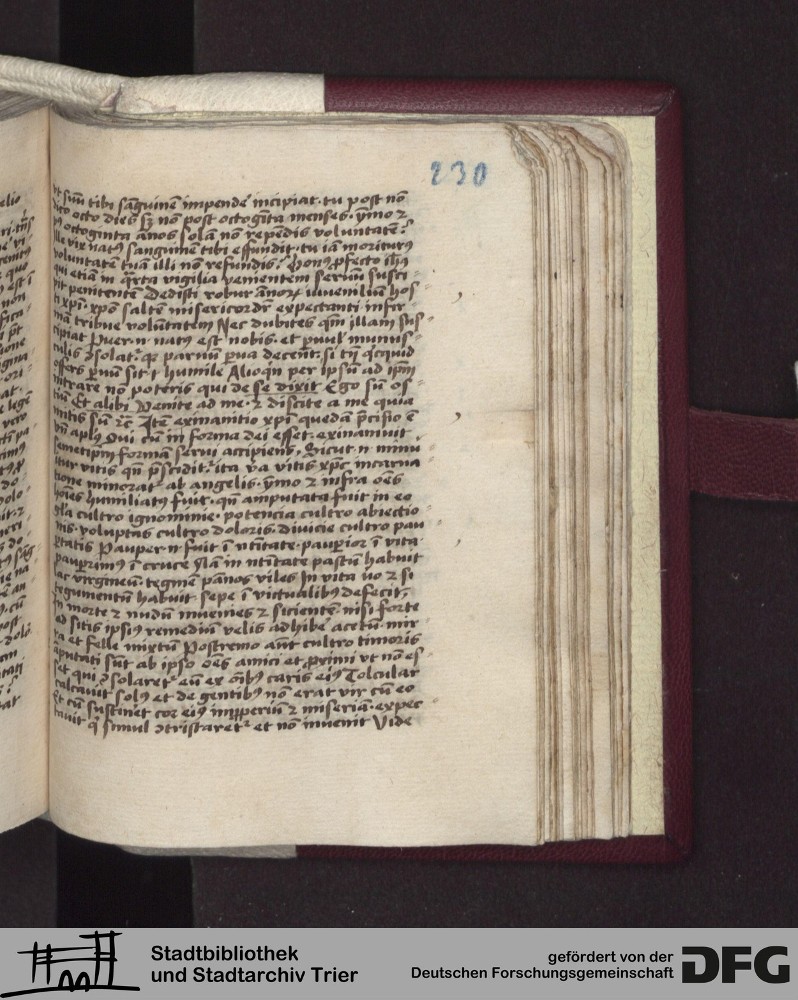 230
ut suū tibi sāguinē impende incipiat. tu post nō
dico octo dies sȝ nō post octogīta menses. ymo ⁊
octoginta ānos solā nō repēdis voluntatē?
ille vix natꝰ sanguinē tibi effundit. tu iā moriturꝰ
voluntatē tuā illi nō refundis? ꝓfecto
qui etiā in q̄rta vigilia venientem seruū susci
pit penitentē Dedisti robur ānoꝝ iuueniliū hos
ti xp̄i. xp̄o saltē misericordr̄ expectanti infir
mā tribue volūtatem Nec dubites qm̄ illam sus
cipiat Puer .n. natꝰ est nobis. et puul munus
culis ꝯsolat. qꝛ parnū pua decent. si tn̄ qcquid
offers puū sit ⁊ humile Alioqn per ipsū ad ipm̄
intrare nō poteris qui de se dixit Ego sū os
tiū Et alibi Venite ad me. ⁊ discite a me quia
mitis sū ⁊c̄ Itē exinanitio xp̄i quedā p̄cisio ē
vn̄ aplꝰ Qui cū in forma dei esset. exinaniuit
semetipm̄ formā serui accipiens. Sicut .n. minu
itur vitis qn̄ p̄scidit. ita va vitis xp̄c incarna
tione minorat ab angelis. ymo ⁊ infra oēs
hoīes humiliatꝰ fuit. qn̄ amputata fuit in eo
gl̄a cultro ignominie. potencia cultro abiectio
nis. voluptas cultro doloris. diuicie cultro pau
ptatis Pauper .n. fuit ī natītate paupior ī vita
paupimꝰ ī cruce Nā in natītate pastū habuit
lac virgineū. tegmē pānos viles In vita uo ⁊ si
tegumentū habuit sepe ī victualibꝰ defecit.
In morte ⁊ nudū inuenies ⁊ sicientē nisi forte
ad sitis ipsiꝰ remediū velis adhibe acetū mir
ra et felle mixtū Postremo aūt cultro timoris
aputati sūt ab ipso oēs amici et ꝓximi vt nō es
set qui ꝯsolaret eū ex oībꝰ caris eiꝰ Tolcular
calcauit solꝰ et de gentibꝰ nō erat vir cū eo
Et cū sustinet cor eiꝰ imꝓperiū ⁊ miseriā. expec
tauit q̄ simul ꝯtristaret ⁊ et nō inuenit Vide
Stadtbibliothek
und Stadtarchiv Trier
gefördert von der
Deutschen Forschungsgemeinschaft
DFG